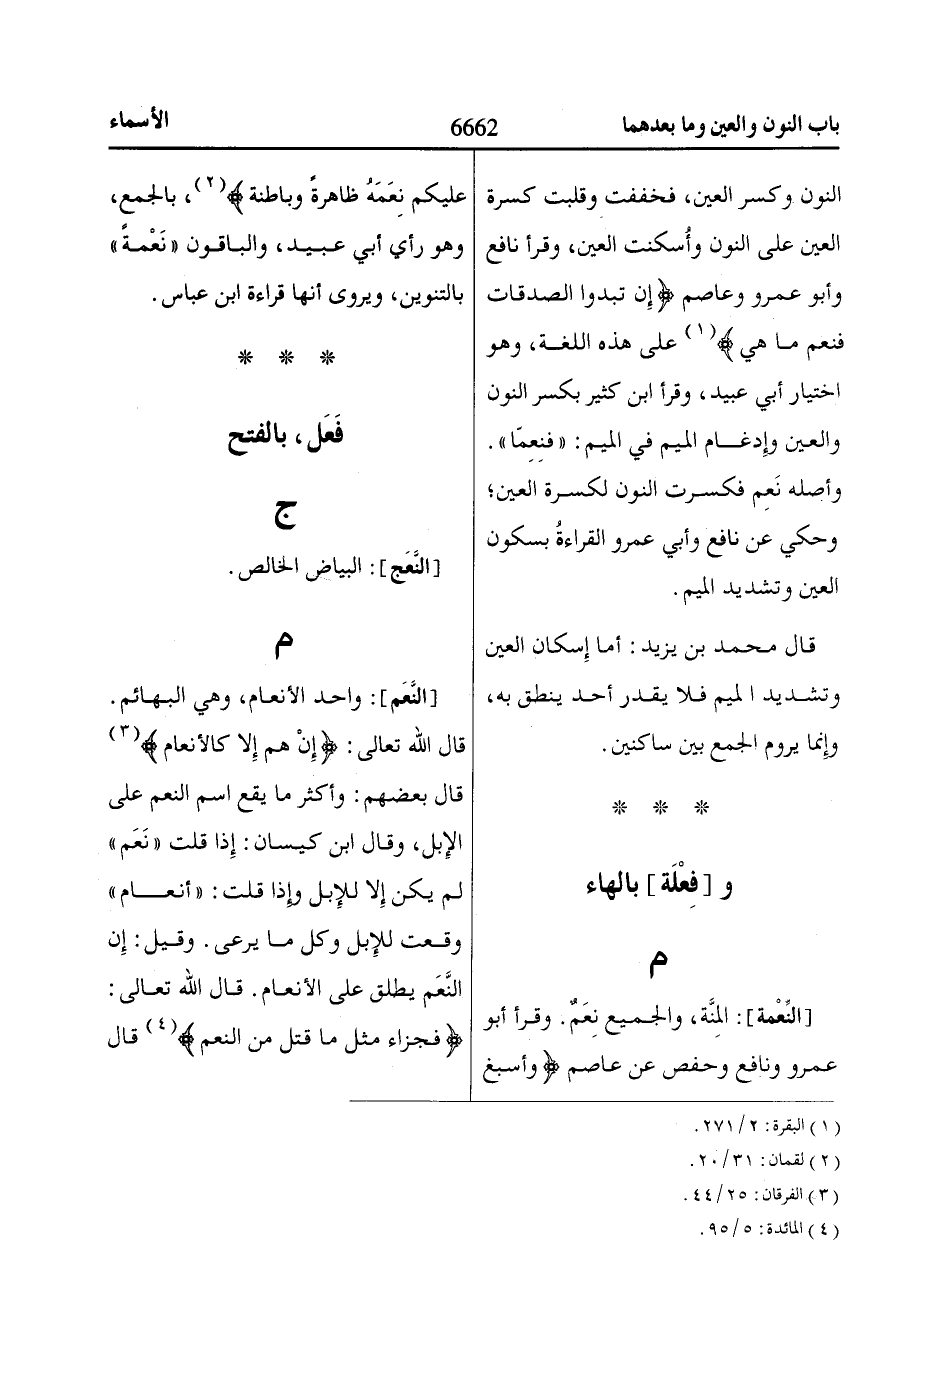 باب النون والعين وما بعدهما 6662 الأسماء
النون وكسر العين، فخففت وقلبت كسرة
العين على النون وأُسكنت العين، وقرأ نافع
وأبو عمرو وعاصم ﴿إن تبدوا الصدقات
فنعم ما هي﴾(١) على هذه اللغة، وهو
اختيار أبي عبيد، وقرأ ابن كثير بكسر النون
والعين وإدغام الميم في الميم: «فنِعِمّا».
وأصله نَعِم فكسرت النون لكسرة العين؛
وحكي عن نافع وأبي عمرو القراءةُ بسكون
العين وتشديد الميم.
قال محمد بن يزيد: أما إسكان العين
وتشديد الميم فلا يقدر أحد ينطق به،
وإنما يروم الجمع بين ساكنين.
* * *
و [فِعْلَة] بالهاء
م
[النِّعْمة]: المنَّة، والجميع نِعَمٌ. وقرأ أبو
عمرو ونافع وحفص عن عاصم ﴿وأسبغ
عليكم نِعَمَهُ ظاهرةً وباطنة﴾(٢)، بالجمع،
وهو رأي أبي عبيد، والباقون «نَعْمةً»
بالتنوين، ويروى أنها قراءة ابن عباس.
* * *
فَعَل، بالفتح
ج
[النَّعَج]: البياض الخالص.
م
[النَّعَم]: واحد الأنعام، وهي البهائم.
قال الله تعالى: ﴿إنْ هم إلا كالأنعام﴾(٣)
قال بعضهم: وأكثر ما يقع اسم النعم على
الإبل، وقال ابن كيسان: إذا قلت «نَعَم»
لم يكن إلا للإبل وإذا قلت: «أنعام»
وقعت للإبل وكل ما يرعى. وقيل: إن
النَّعَم يطلق على الأنعام. قال الله تعالى:
﴿فجزاء مثل ما قتل من النعم﴾(٤) قال
(١) البقرة: ٢/٢٧١.
(٢) لقمان: ٣١/٢٠.
(٣) الفرقان: ٢٥/٤٤.
(٤) المائدة: ٥/٩٥.